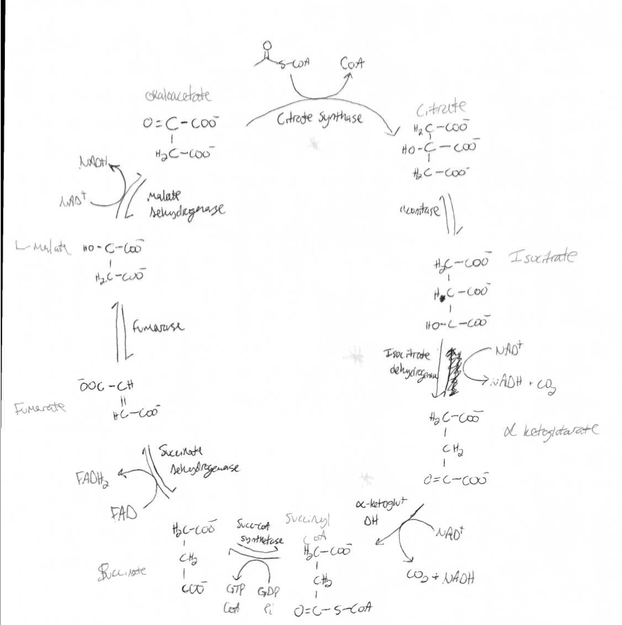 O
S-CoA CoA
oxaloacetate
Citrate Synthase
Citrate
O=C-COO⁻
H₂C-COO⁻
H₂C-COO⁻
HO-C-COO⁻
H₂C-COO⁻
NADH
NAD⁺
Malate
dehydrogenase
Aconitase
L-malate
HO-C-COO⁻
H₂C-COO⁻
Isocitrate
H₂C-COO⁻
HC-COO⁻
HO-C-COO⁻
Fumarase
Isocitrate
dehydrogenase
NAD⁺
NADH + CO₂
⁻OOC-CH
HC-COO⁻
Fumarate
H₂C-COO⁻
CH₂
O=C-COO⁻
α ketoglutarate
Succinate
dehydrogenase
FADH₂
FAD
α-ketoglut
DH
NAD⁺
CO₂ + NADH
Succinate
H₂C-COO⁻
CH₂
COO⁻
Succ-CoA
synthetase
GTP GDP
CoA Pi
Succinyl
CoA
H₂C-COO⁻
CH₂
O=C-S-CoA